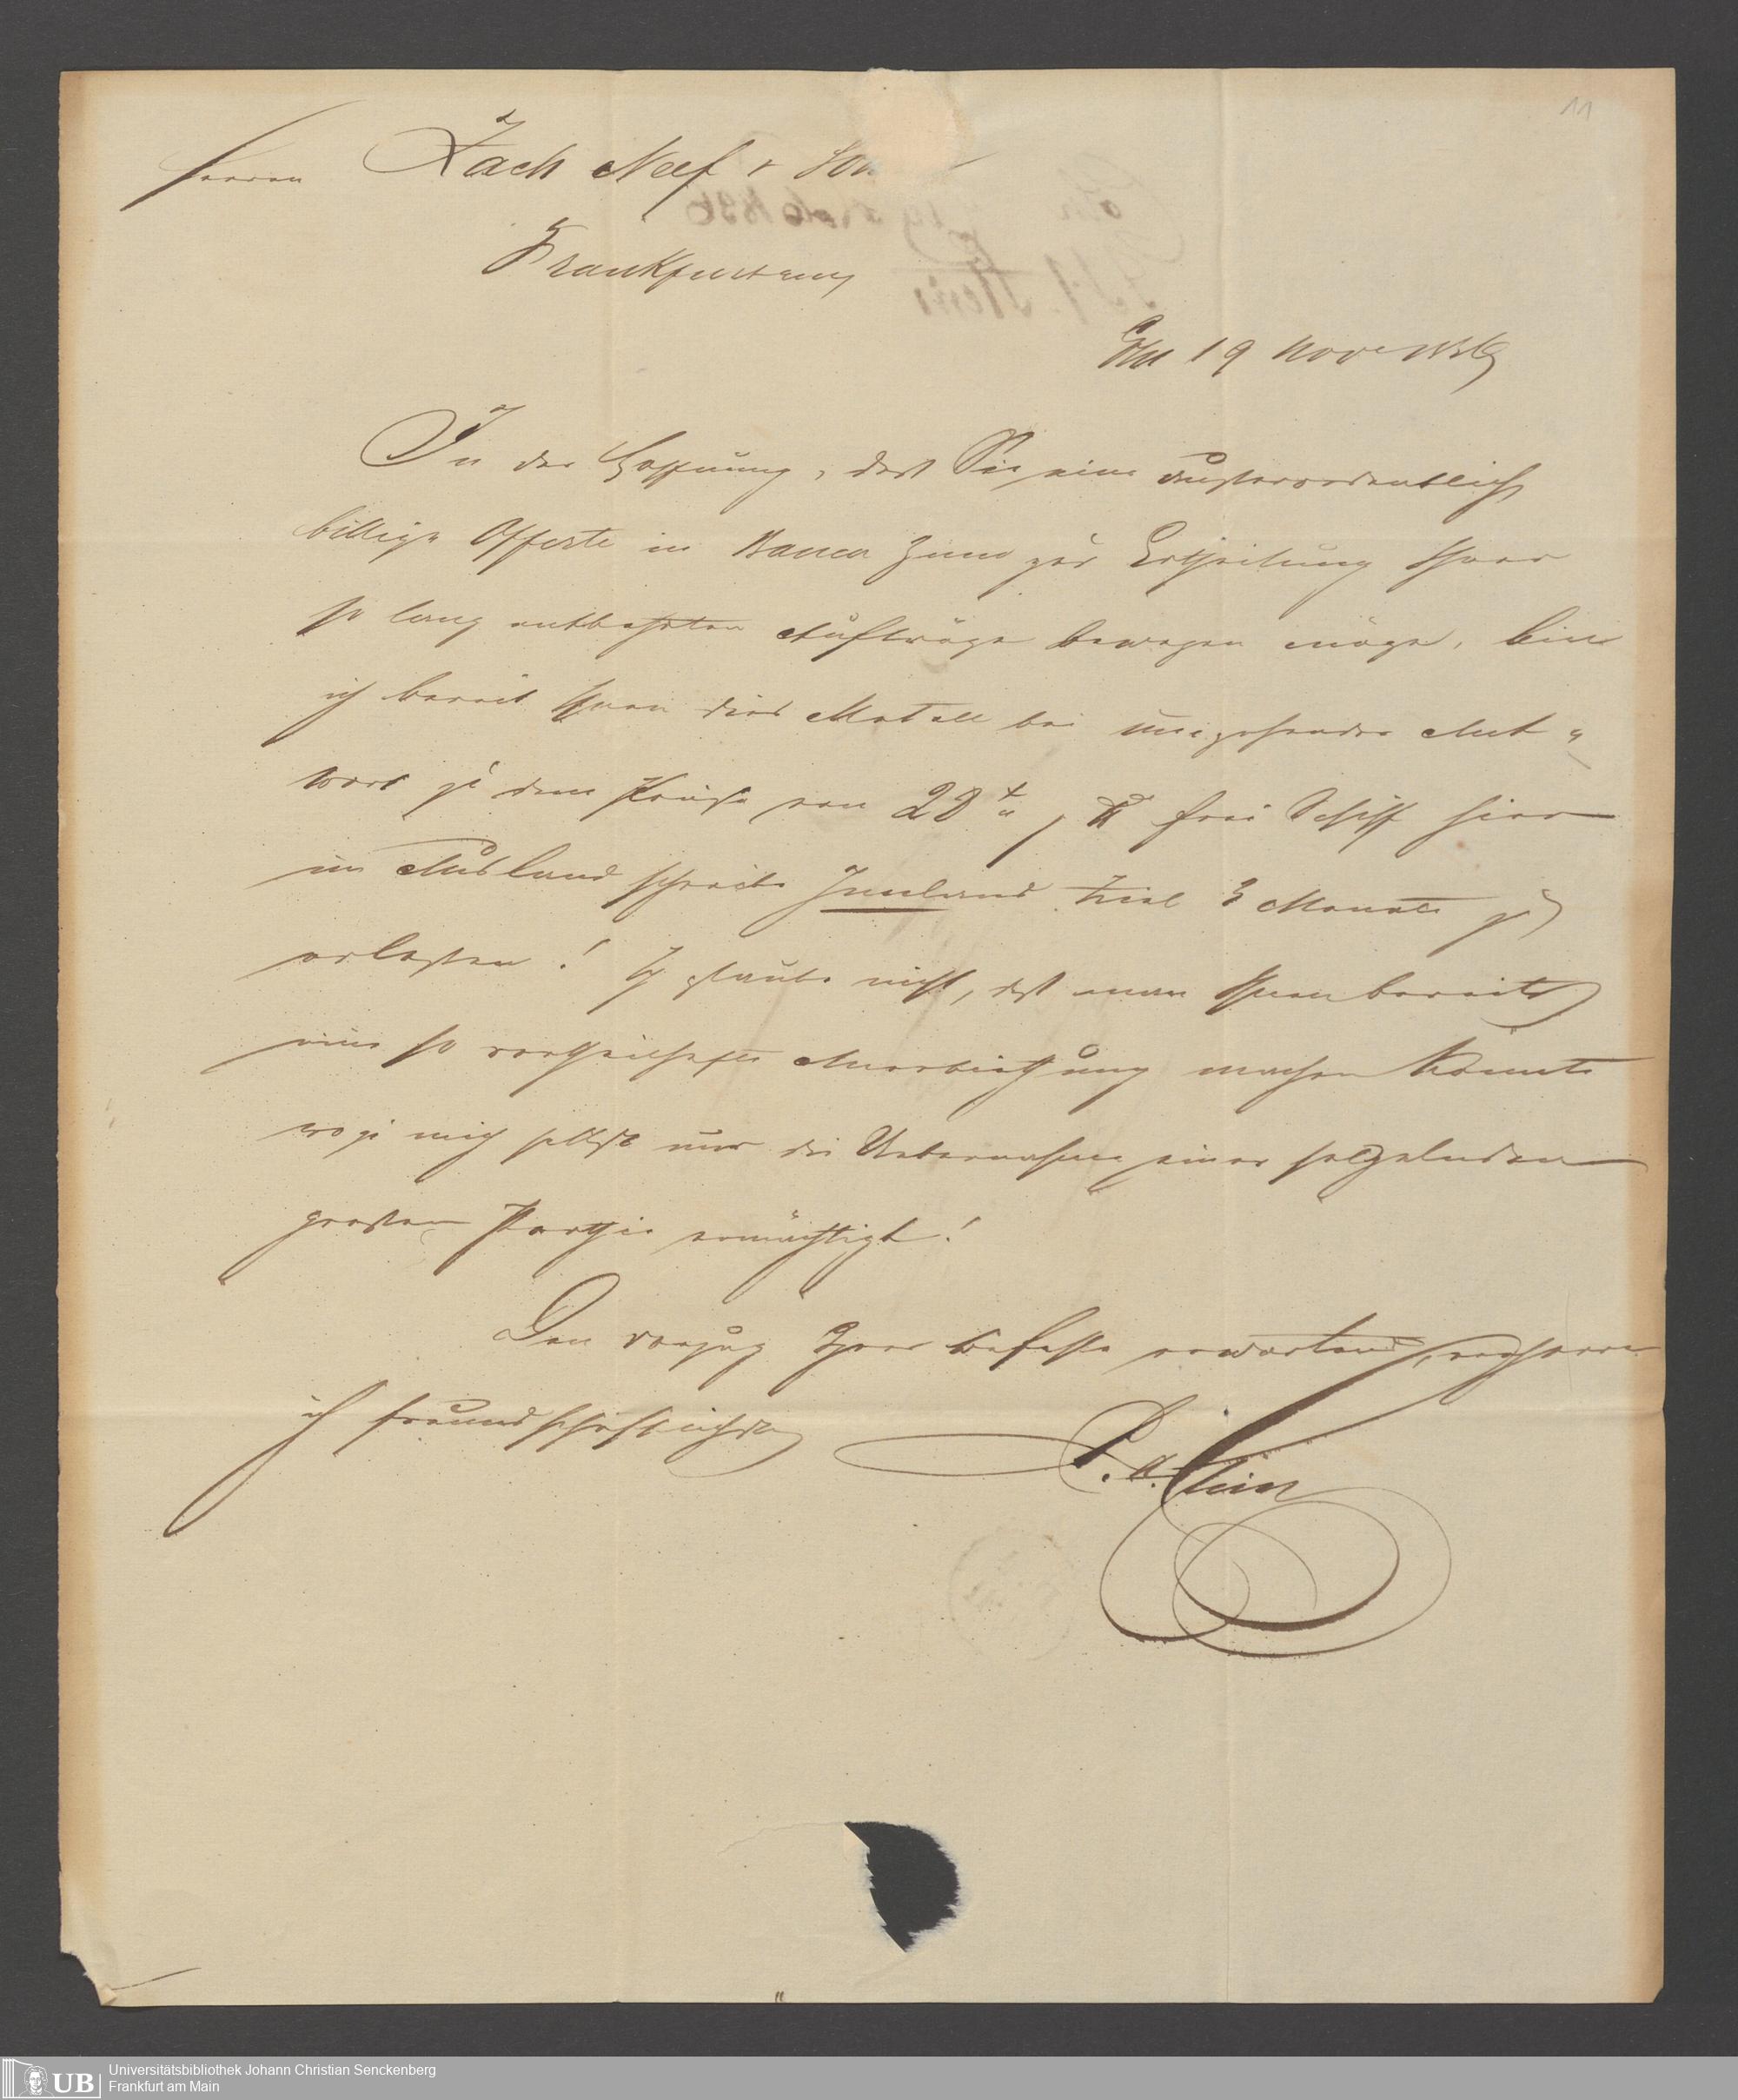 11
Herren Zach Neef & Soh
Frankfurt a/m
Cöln 19 Nove 1836
In der Hoffnung, daß Sie eine außerordentlich
billige Offerte in Banca Zinn zur Ertheilung Ihrer
so lang entbehrten Aufträge bewegen möge, bin
ich bereit Ihnen dies Metall bei umgehender Ant„
wort zu dem Preise von 28 frei Schiff hier
im Ausland Innland Ziel 3 Monate zu
erlassen! Ich glaube nicht, daß man Ihnen bereits
eine so vortheilhafte Anerbiethung machen konnte
wozu mich selbst nur die Uebernahme einer
großen Parthie ermächtigt!
Den Vorzug Ihrer Befehle erwartend, verharre
ich freundschaftlichst
Universitätsbibliothek Johann Christian Senckenberg
Frankfurt am Main
UB